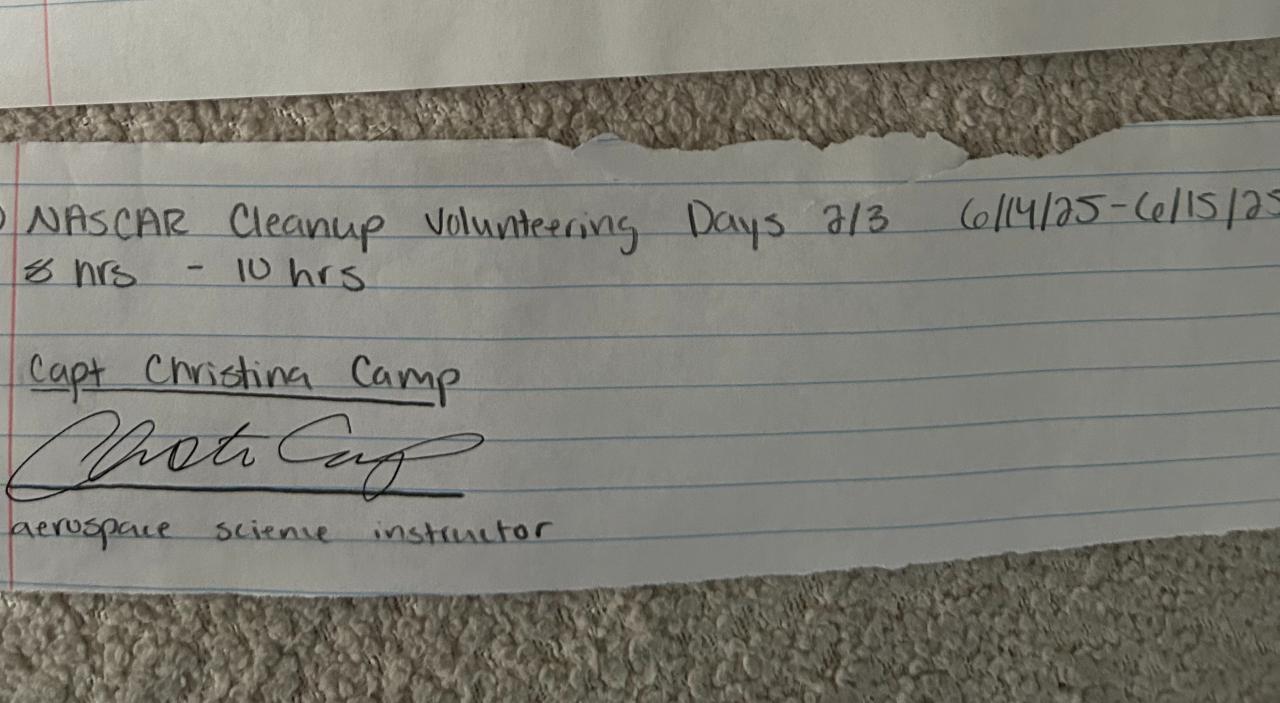 NASCAR Cleanup Volunteering Days 2/3 6/14/25-6/15/25
8 hrs - 10 hrs
Capt Christina Camp
aerospace science instructor